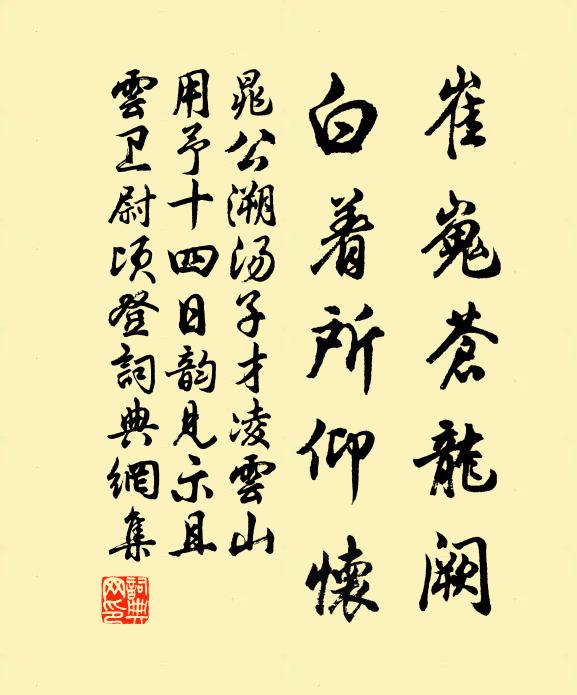 崔嵬蒼龍闕
白着所仰懷
晁公溯汤子才凌雲山
用予十四日韵見示且
雲卫尉頃登詞典網集
詞典网印